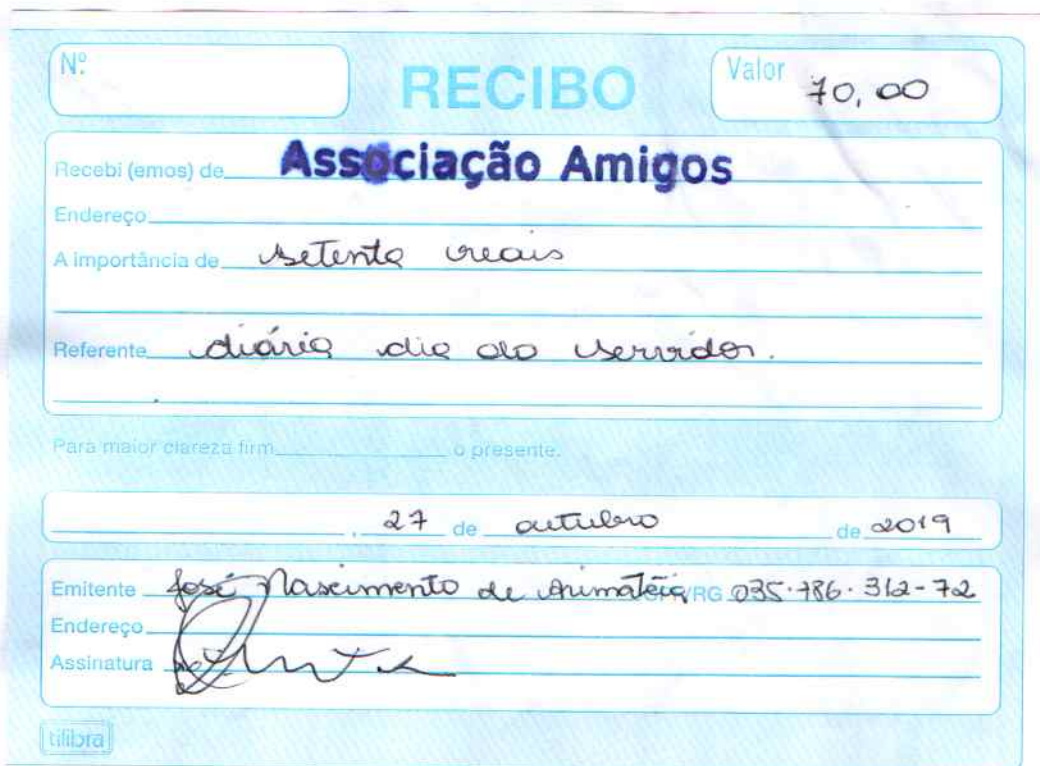 Nº
RECIBO
Valor 70,00
Recebi (emos) de Associação Amigos
Endereço
A importância de setenta reais
Referente diária dia do servidor.
Para maior clareza firm o presente.
, 27 de outubro de 2019
Emitente José Nascimento de Arimatéia CPF/RG 035.786.312-72
Endereço
Assinatura
tilibra